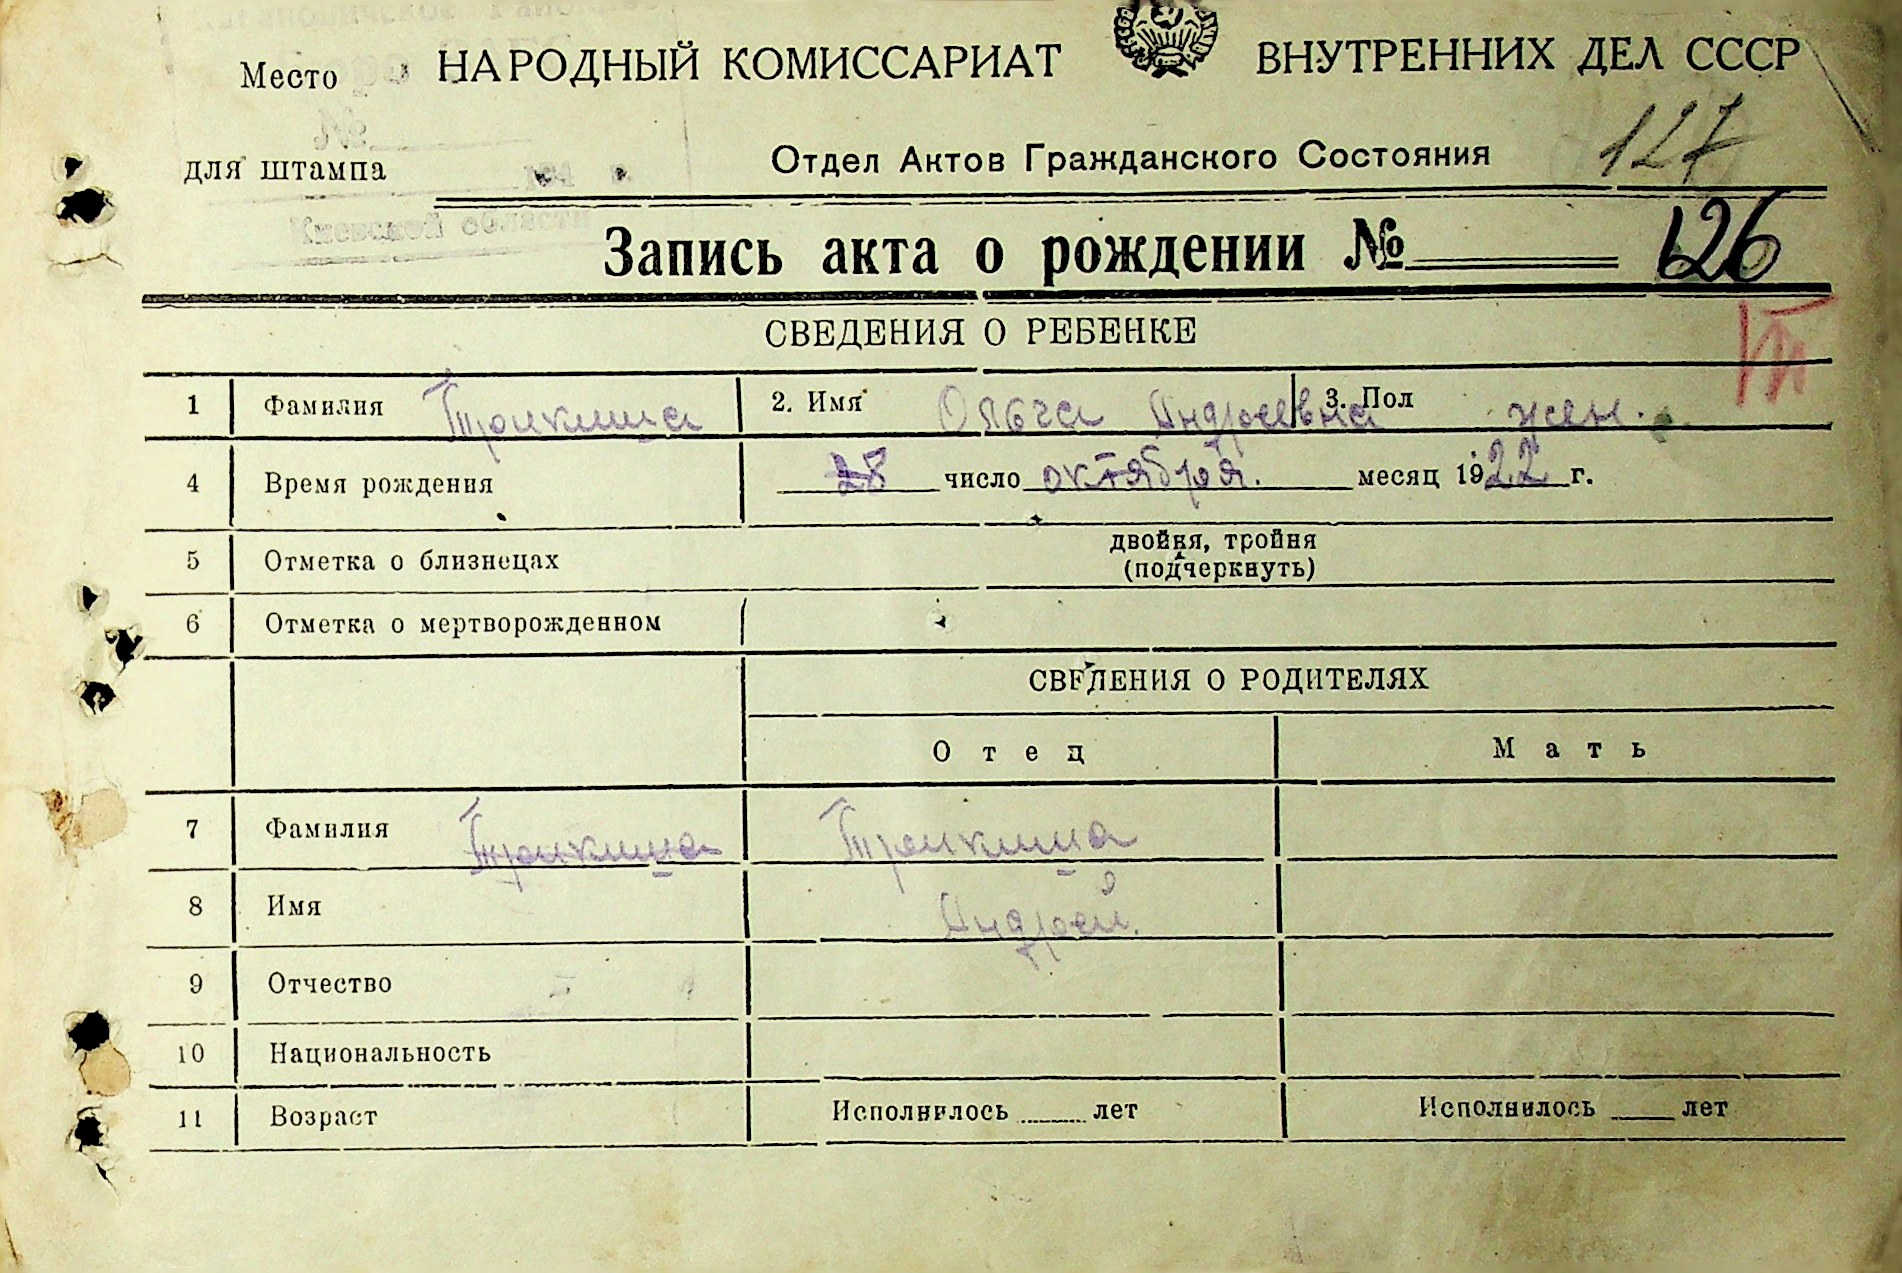 Место НАРОДНЫЙ КОМИССАРИАТ ВНУТРЕННИХ ДЕЛ СССР
для штампа Отдел Актов Гражданского Состояния 127
Киевской области
Запись акта о рождении № 126
СВЕДЕНИЯ О РЕБЕНКЕ
1 Фамилия 2. Имя Ольга Андреевна 3. Пол жен.
4 Время рождения 28 число октября. месяц 1922 г.
5 Отметка о близнецах двойня, тройня
(подчеркнуть)
6 Отметка о мертворожденном
СВЕДЕНИЯ О РОДИТЕЛЯХ
Отец Мать
7 Фамилия
8 Имя Андрей.
9 Отчество
10 Национальность
11 Возраст Исполнилось лет Исполнилось лет